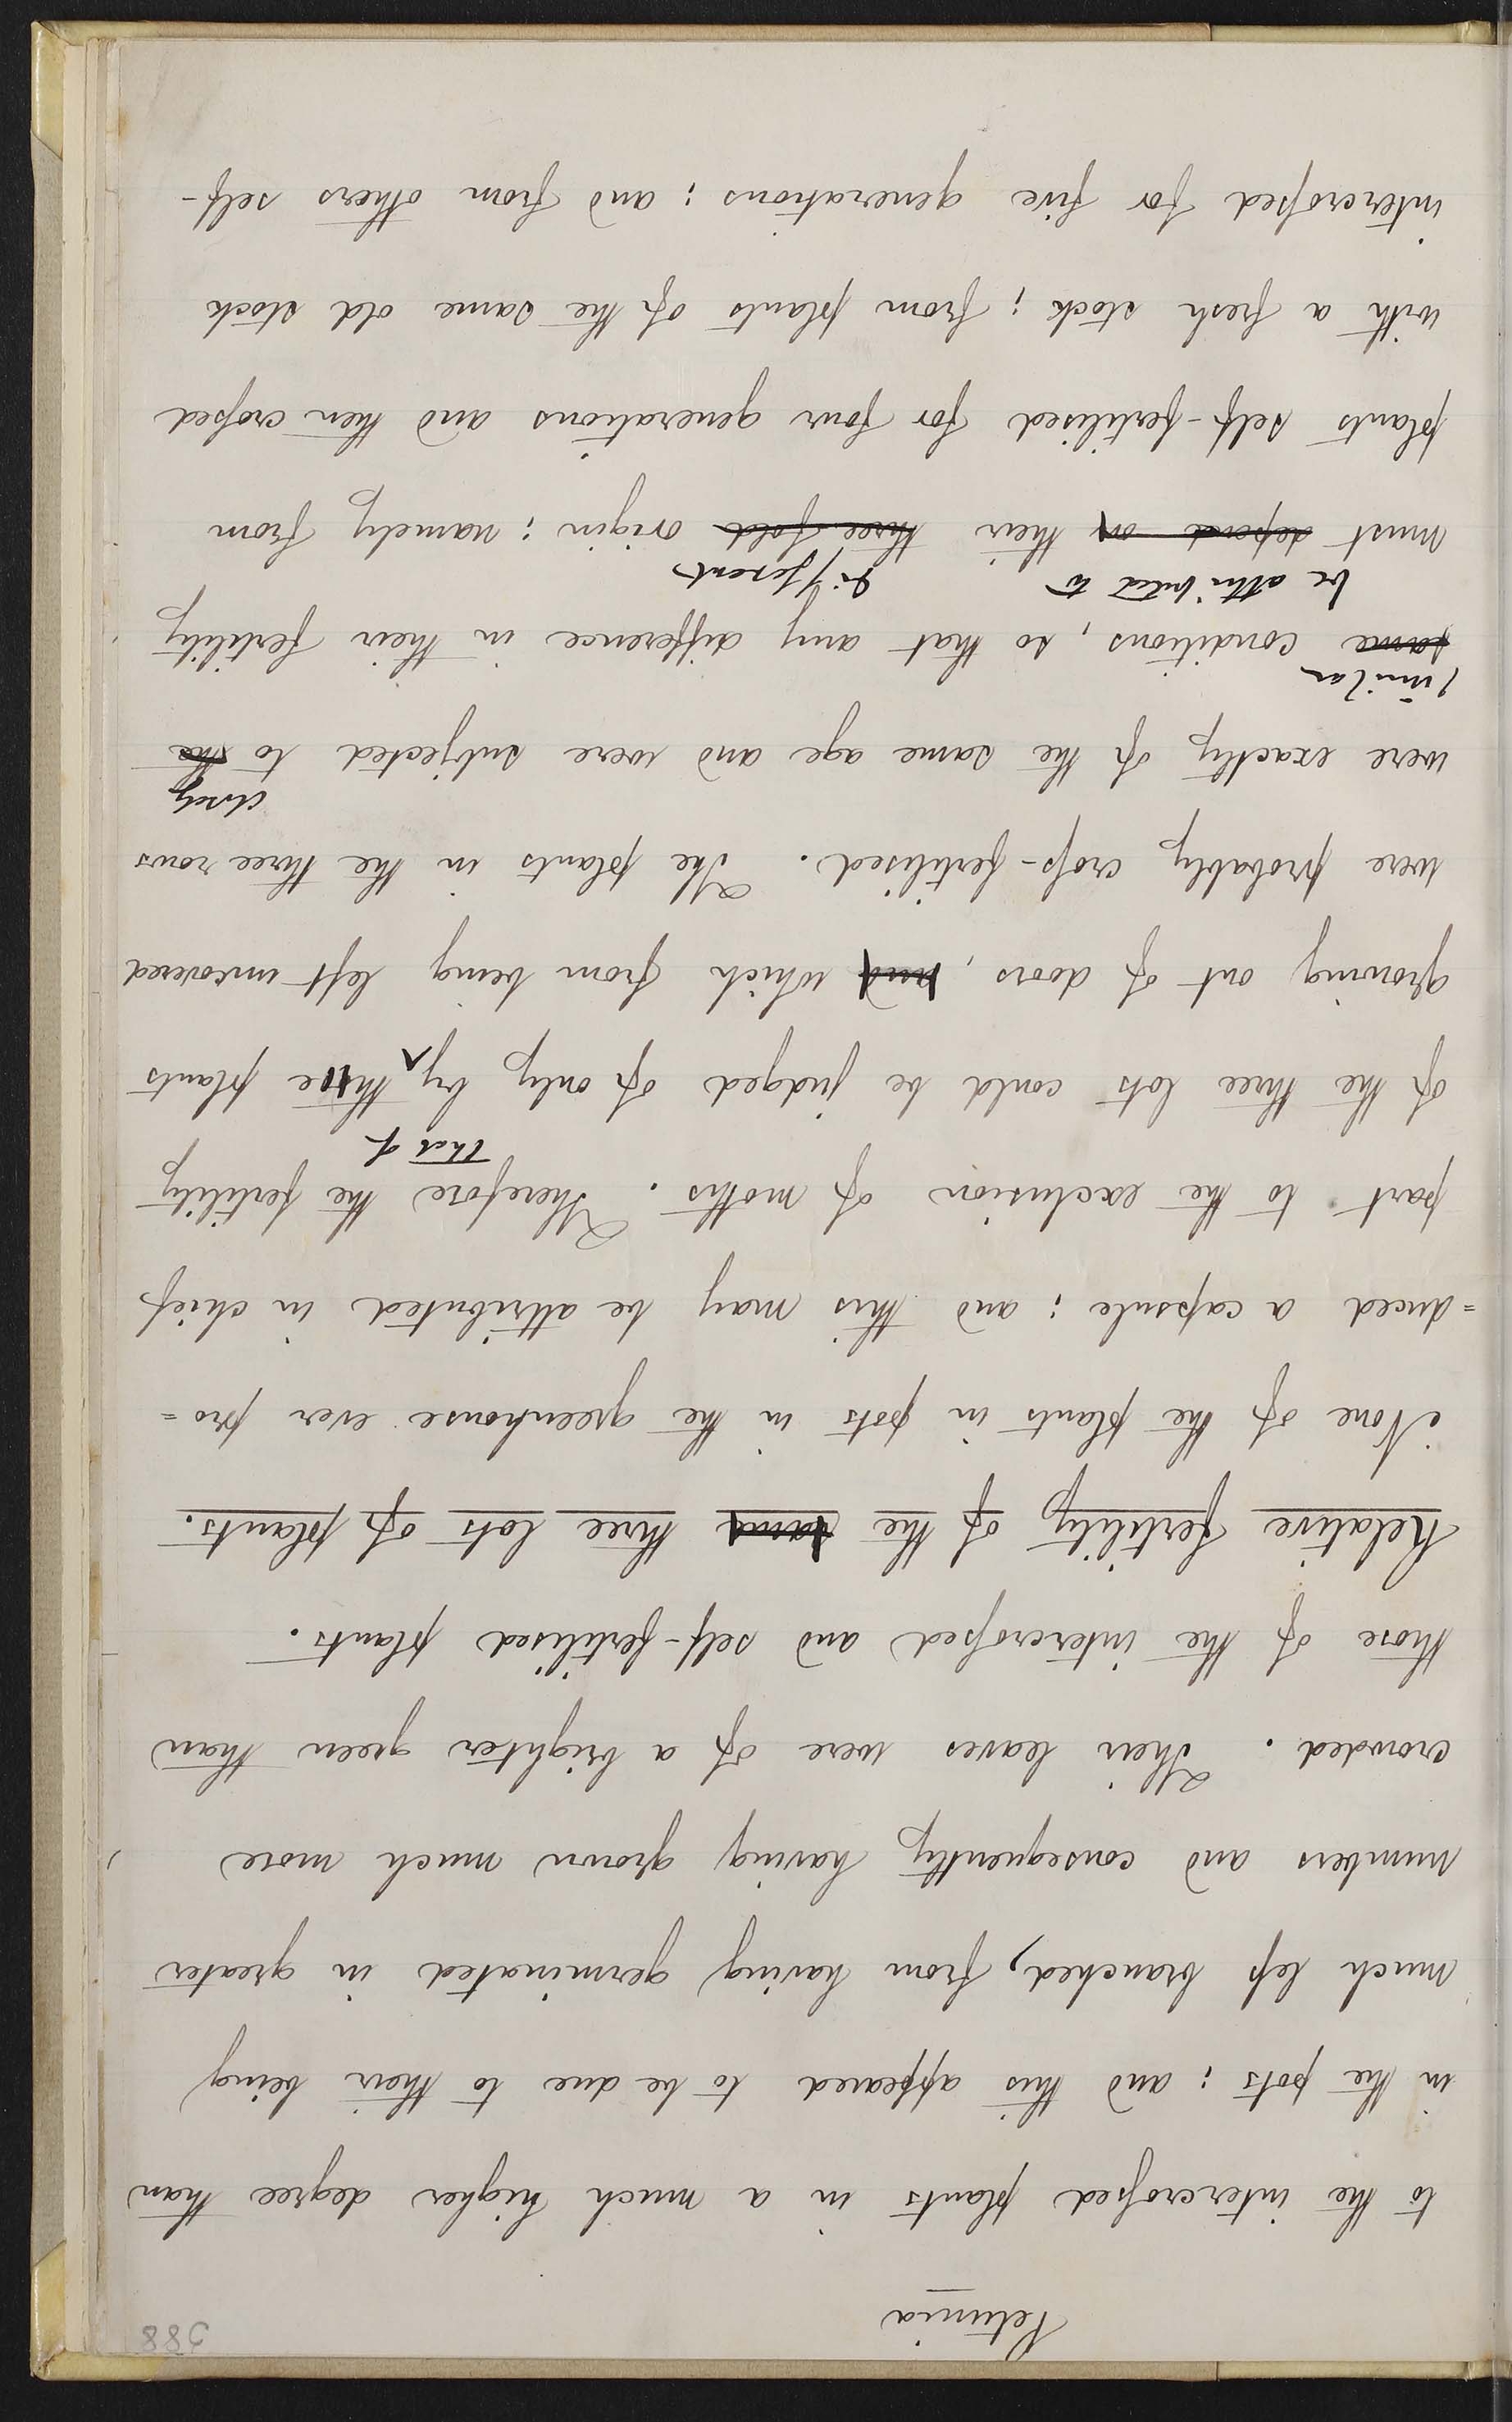 388
Petunia
to the intercrossed plants in a much higher degree than
in the pots; and this appeared to be due to their being
much less branched, from having germinated in greater
numbers and consequently having grown much more
crowded. Their leaves were of a brighter green than
those of the intercrossed and self-fertilised plants.
Relative fertility of the three lots of plants.
None of the plants in pots in the greenhouse ever pro=
=duced a capsule; and this may be attributed in chief
part to the exclusion of moths. Therefore the fertility
that of
of the three lots could be judged of only by the plants
growing out of doors, which from being left uncovered
were probably cross-fertilised. The plants in the three rows
were exactly of the same age and were subjected to the
closely
similar
same conditions, so that any difference in their fertility
be attributed to different
must depend on their three-fold origin; namely from
plants self-fertilised for four generations and then crossed
with a fresh stock; from plants of the same old stock
intercrossed for five generations; and from others self-